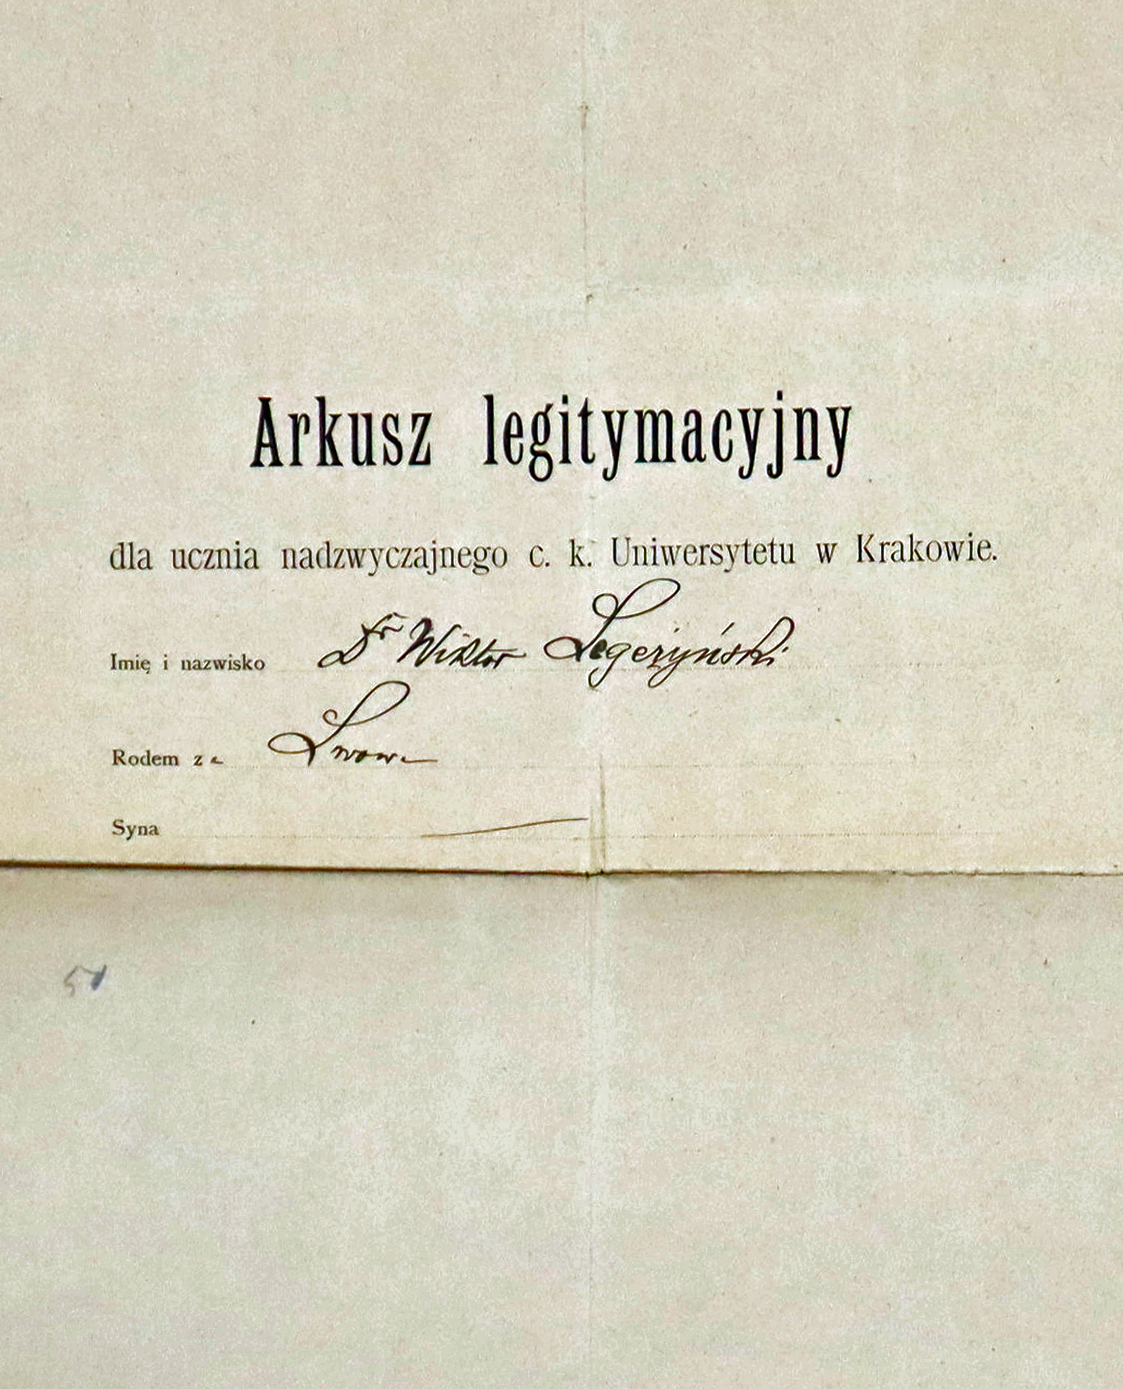 Arkusz legitymacyjny
dla ucznia nadzwyczajnego c. k. Uniwersytetu w Krakowie.
Imię i nazwisko Dr Wiktor Legeżyński
Rodem z e Lwowa
Syna
51